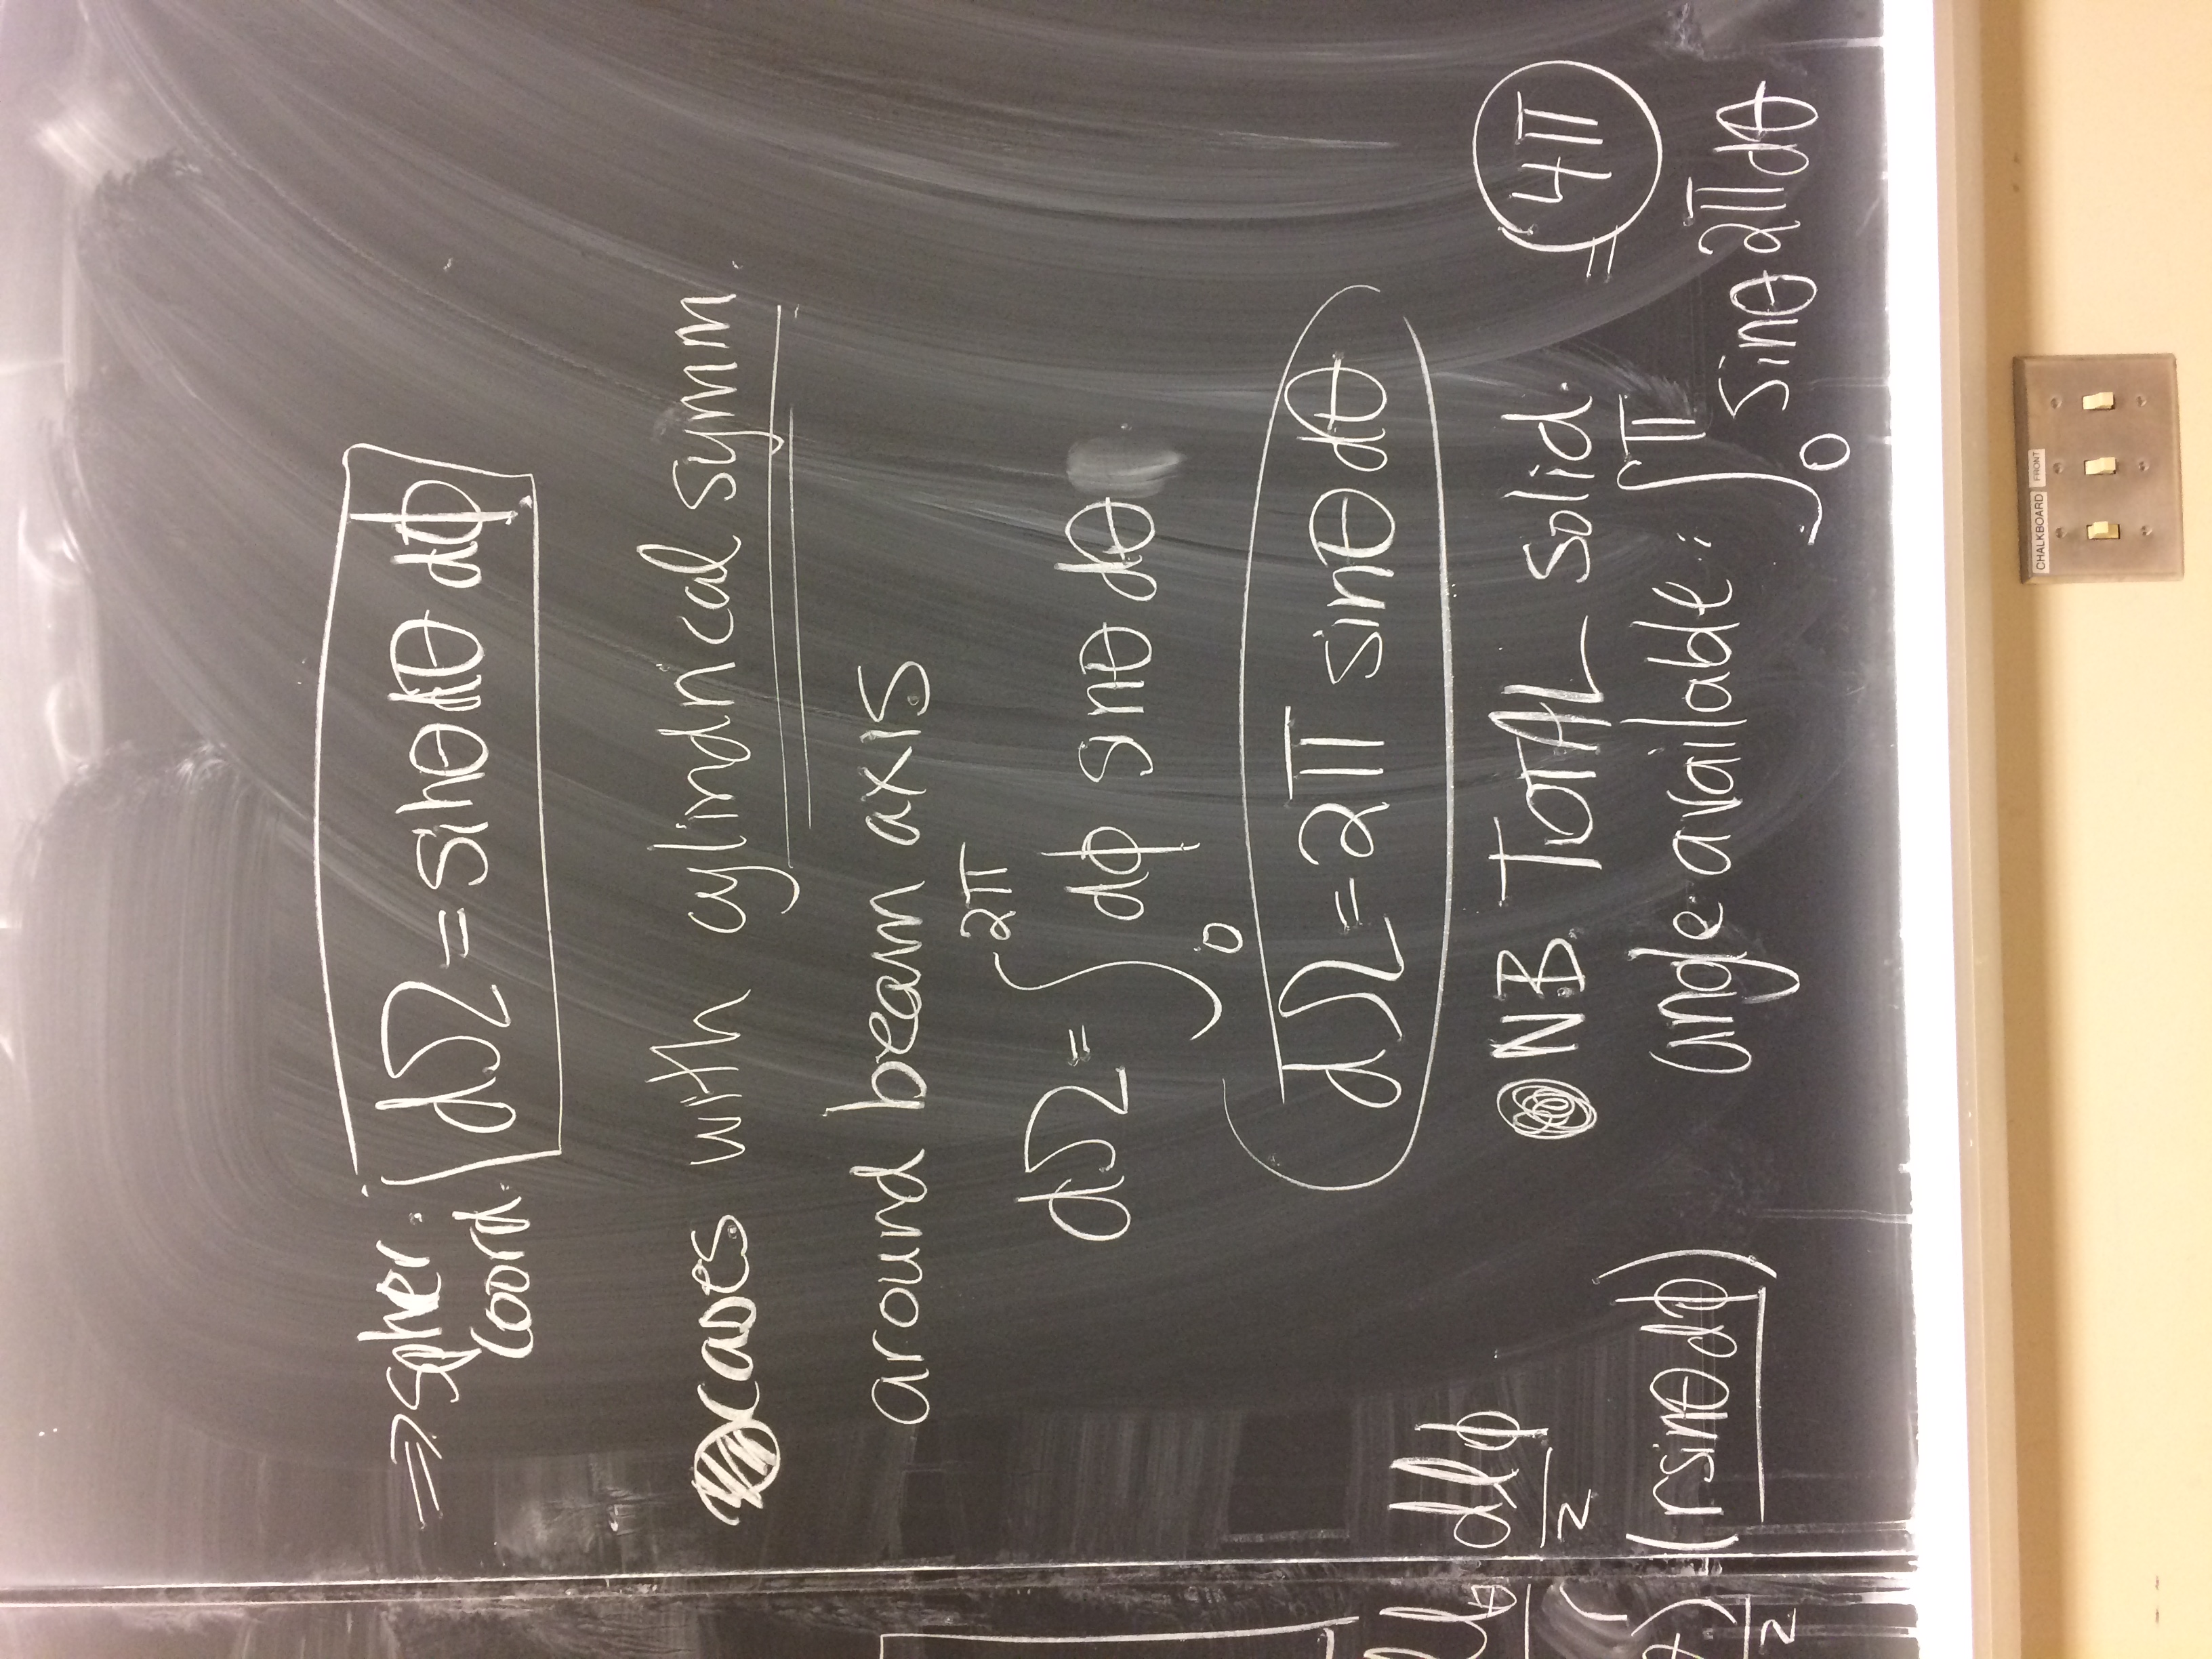 ⇒ spher. coord: dΩ = sinθdθ dϕ
cases with cylindrical symm.
around beam axis
dΩ = ∫₀^2π dϕ sinθ dθ
dΩ = 2π sinθ dθ
N.B. TOTAL solid
angle available: ∫₀^π sinθ 2π dθ
= 4π
dlϕ
(rsinθdϕ)
r
CHALKBOARD
FRONT